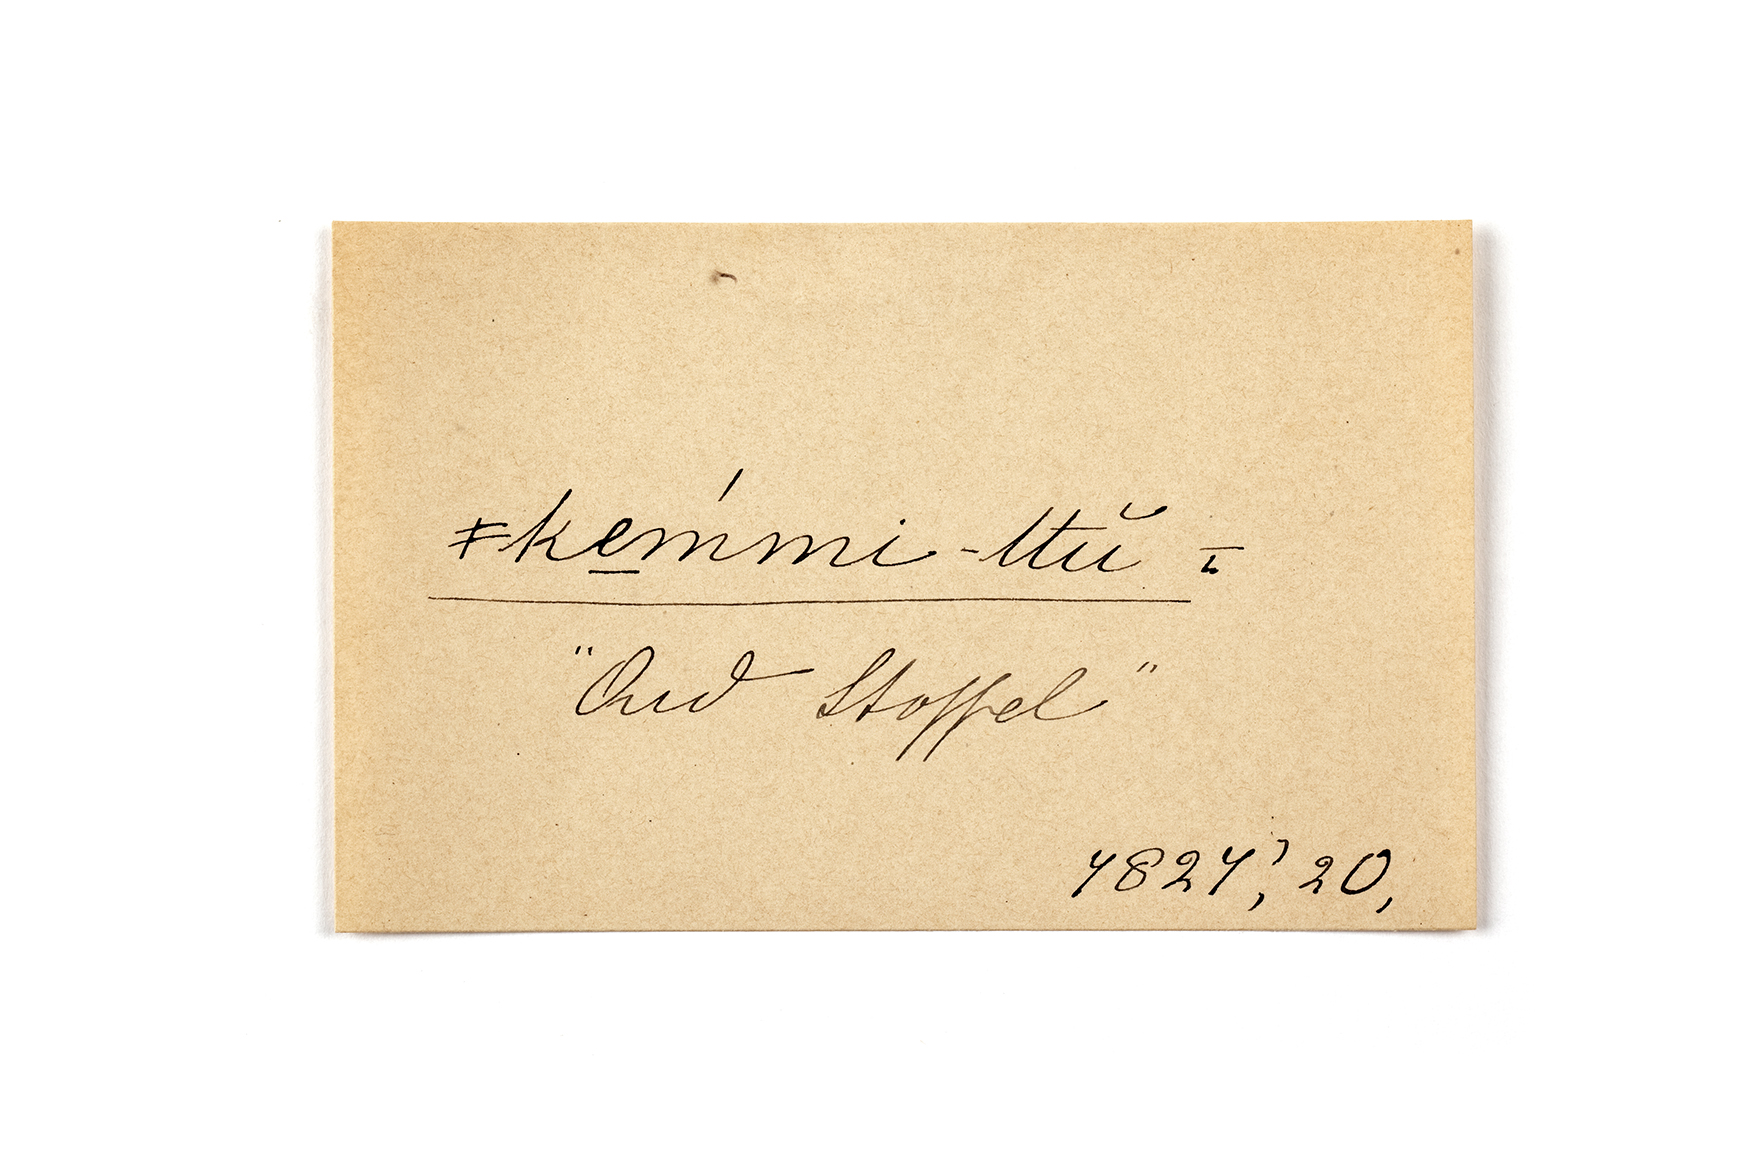 ǂke̱m´mi-ttŭ =
"Oud Stoffel"
4824,' 20,